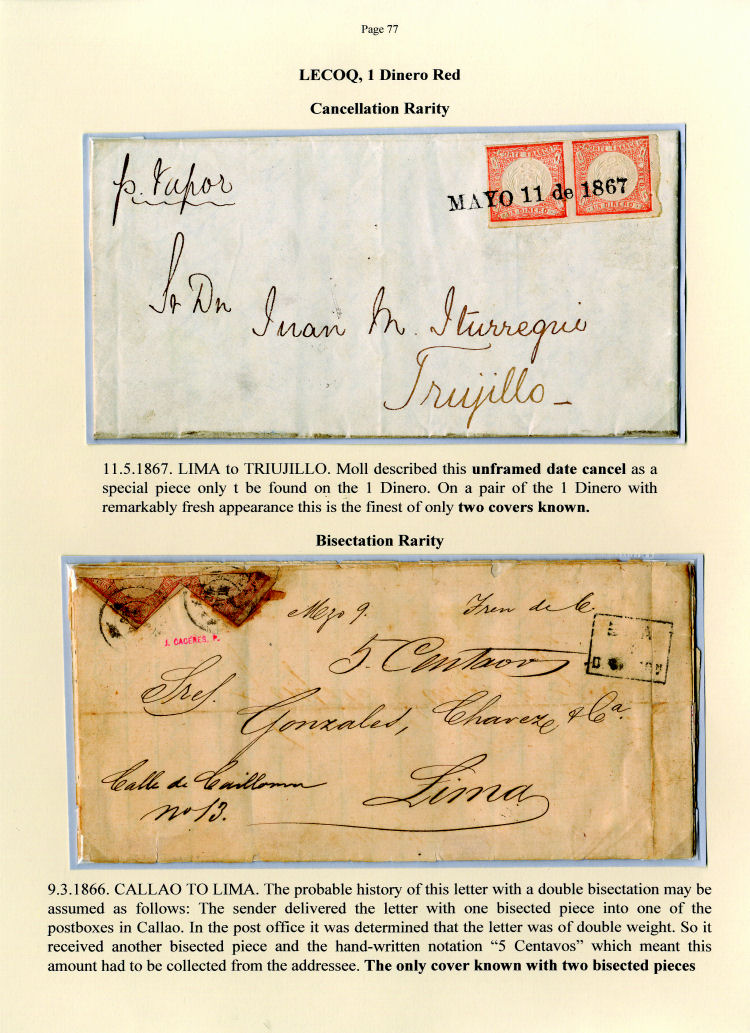 Page 77
LECOQ, 1 Dinero Red
Cancellation Rarity
p. Vapor
PORTE FRANCO PORTE FRANCO
MAYO 11 de 1867
UN DINERO UN DINERO
Sr Dn Juan M. Iturregui
Trujillo_
11.5.1867. LIMA to TRIUJILLO. Moll described this unframed date cancel as a
special piece only t be found on the 1 Dinero. On a pair of the 1 Dinero with
remarkably fresh appearance this is the finest of only two covers known.
Bisectation Rarity
Mzo 9. Tren de
J. CACERES, P.
5. Centavos
Sres.
Gonzales, Chavez & Ca.
Calle de Cailloma
no 13.
Lima
9.3.1866. CALLAO TO LIMA. The probable history of this letter with a double bisectation may be
assumed as follows: The sender delivered the letter with one bisected piece into one of the
postboxes in Callao. In the post office it was determined that the letter was of double weight. So it
received another bisected piece and the hand-written notation “5 Centavos” which meant this
amount had to be collected from the addressee. The only cover known with two bisected pieces